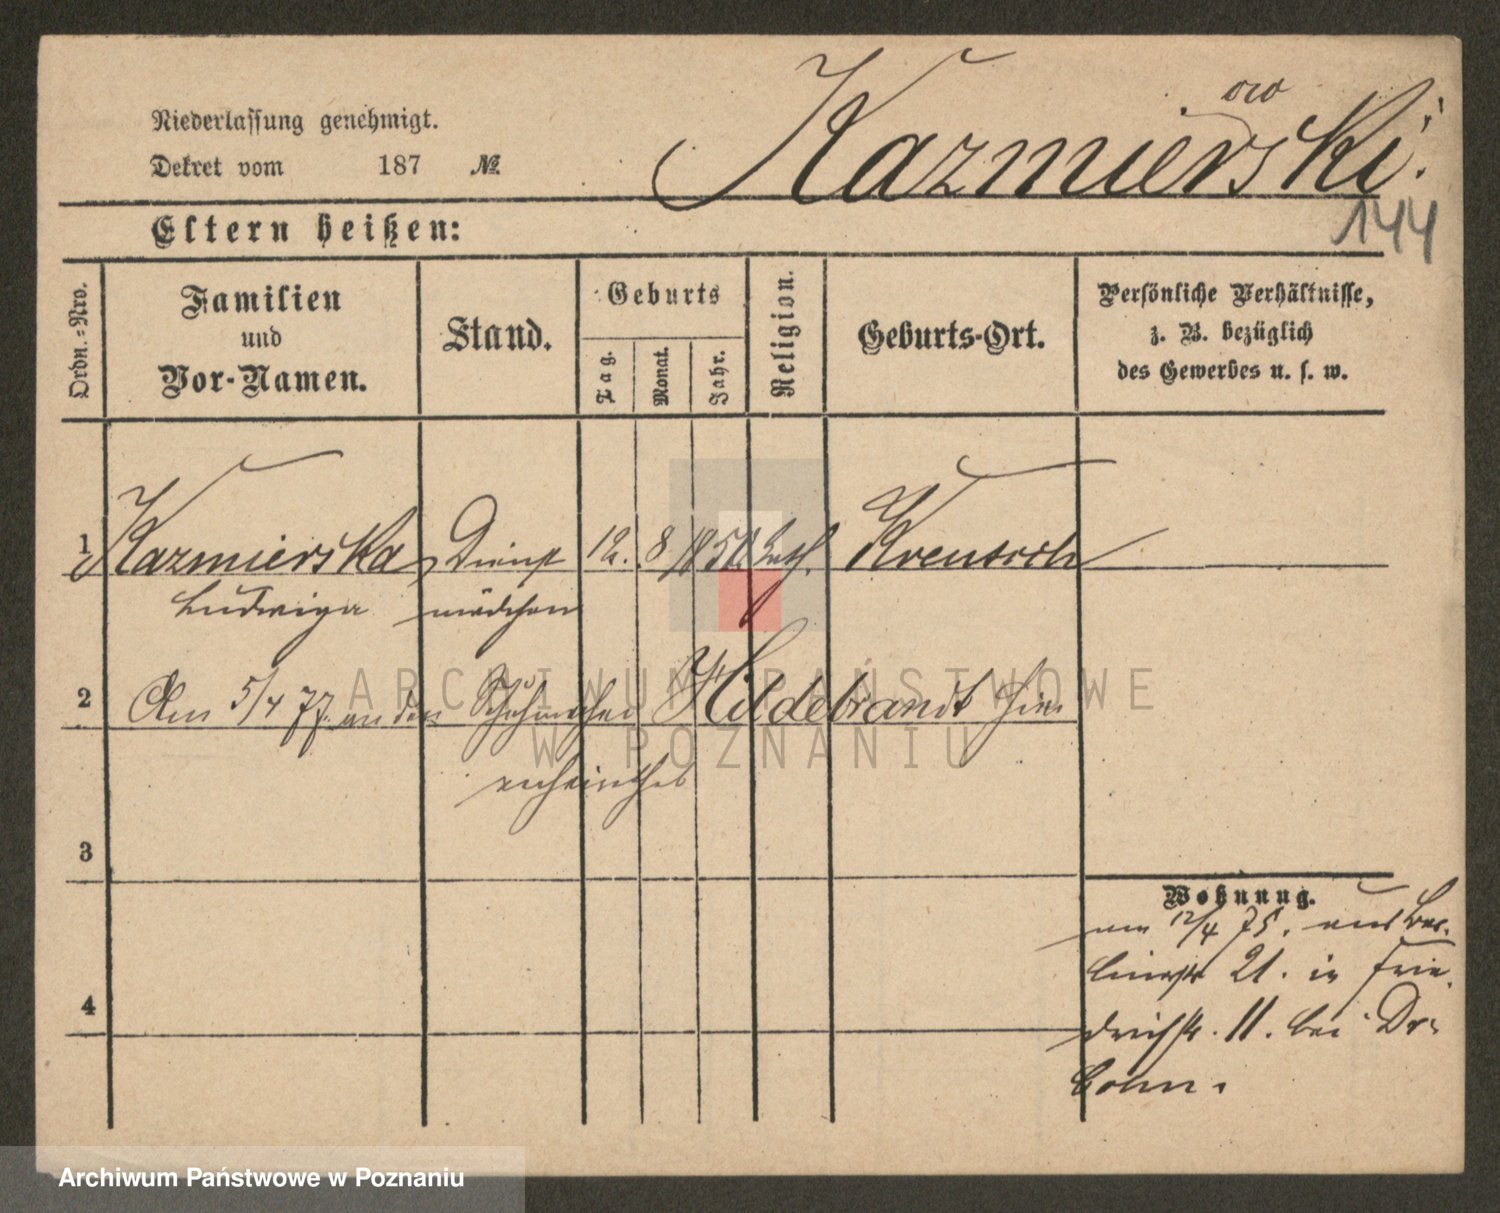 Niederlassung genehmigt.
Dekret vom 187 №
ow
Kazmierski.
144
Eltern heißen:
Ordn.-Nro.
Familien
und
Vor-Namen.
Stand.
Geburts
Tag.
Monat.
Jahr.
Religion.
Geburts-Ort.
Persönliche Verhältnisse,
z. B. bezüglich
des Gewerbes u. s. w.
1 Kazmierska Dienst 12. 8 kath.
Ludwiga mädchen
2 Am 5/4 77. an den Schuhmacher Hildebrandt hier
verheirathet
3
4
Wohnung.
am 12/4 75. aus Ber-
linerstr 21. in Frie-
drichstr. 11. bei Dr.
ARCHIWUM PAŃSTWOWE
W POZNANIU
Archiwum Państwowe w Poznaniu